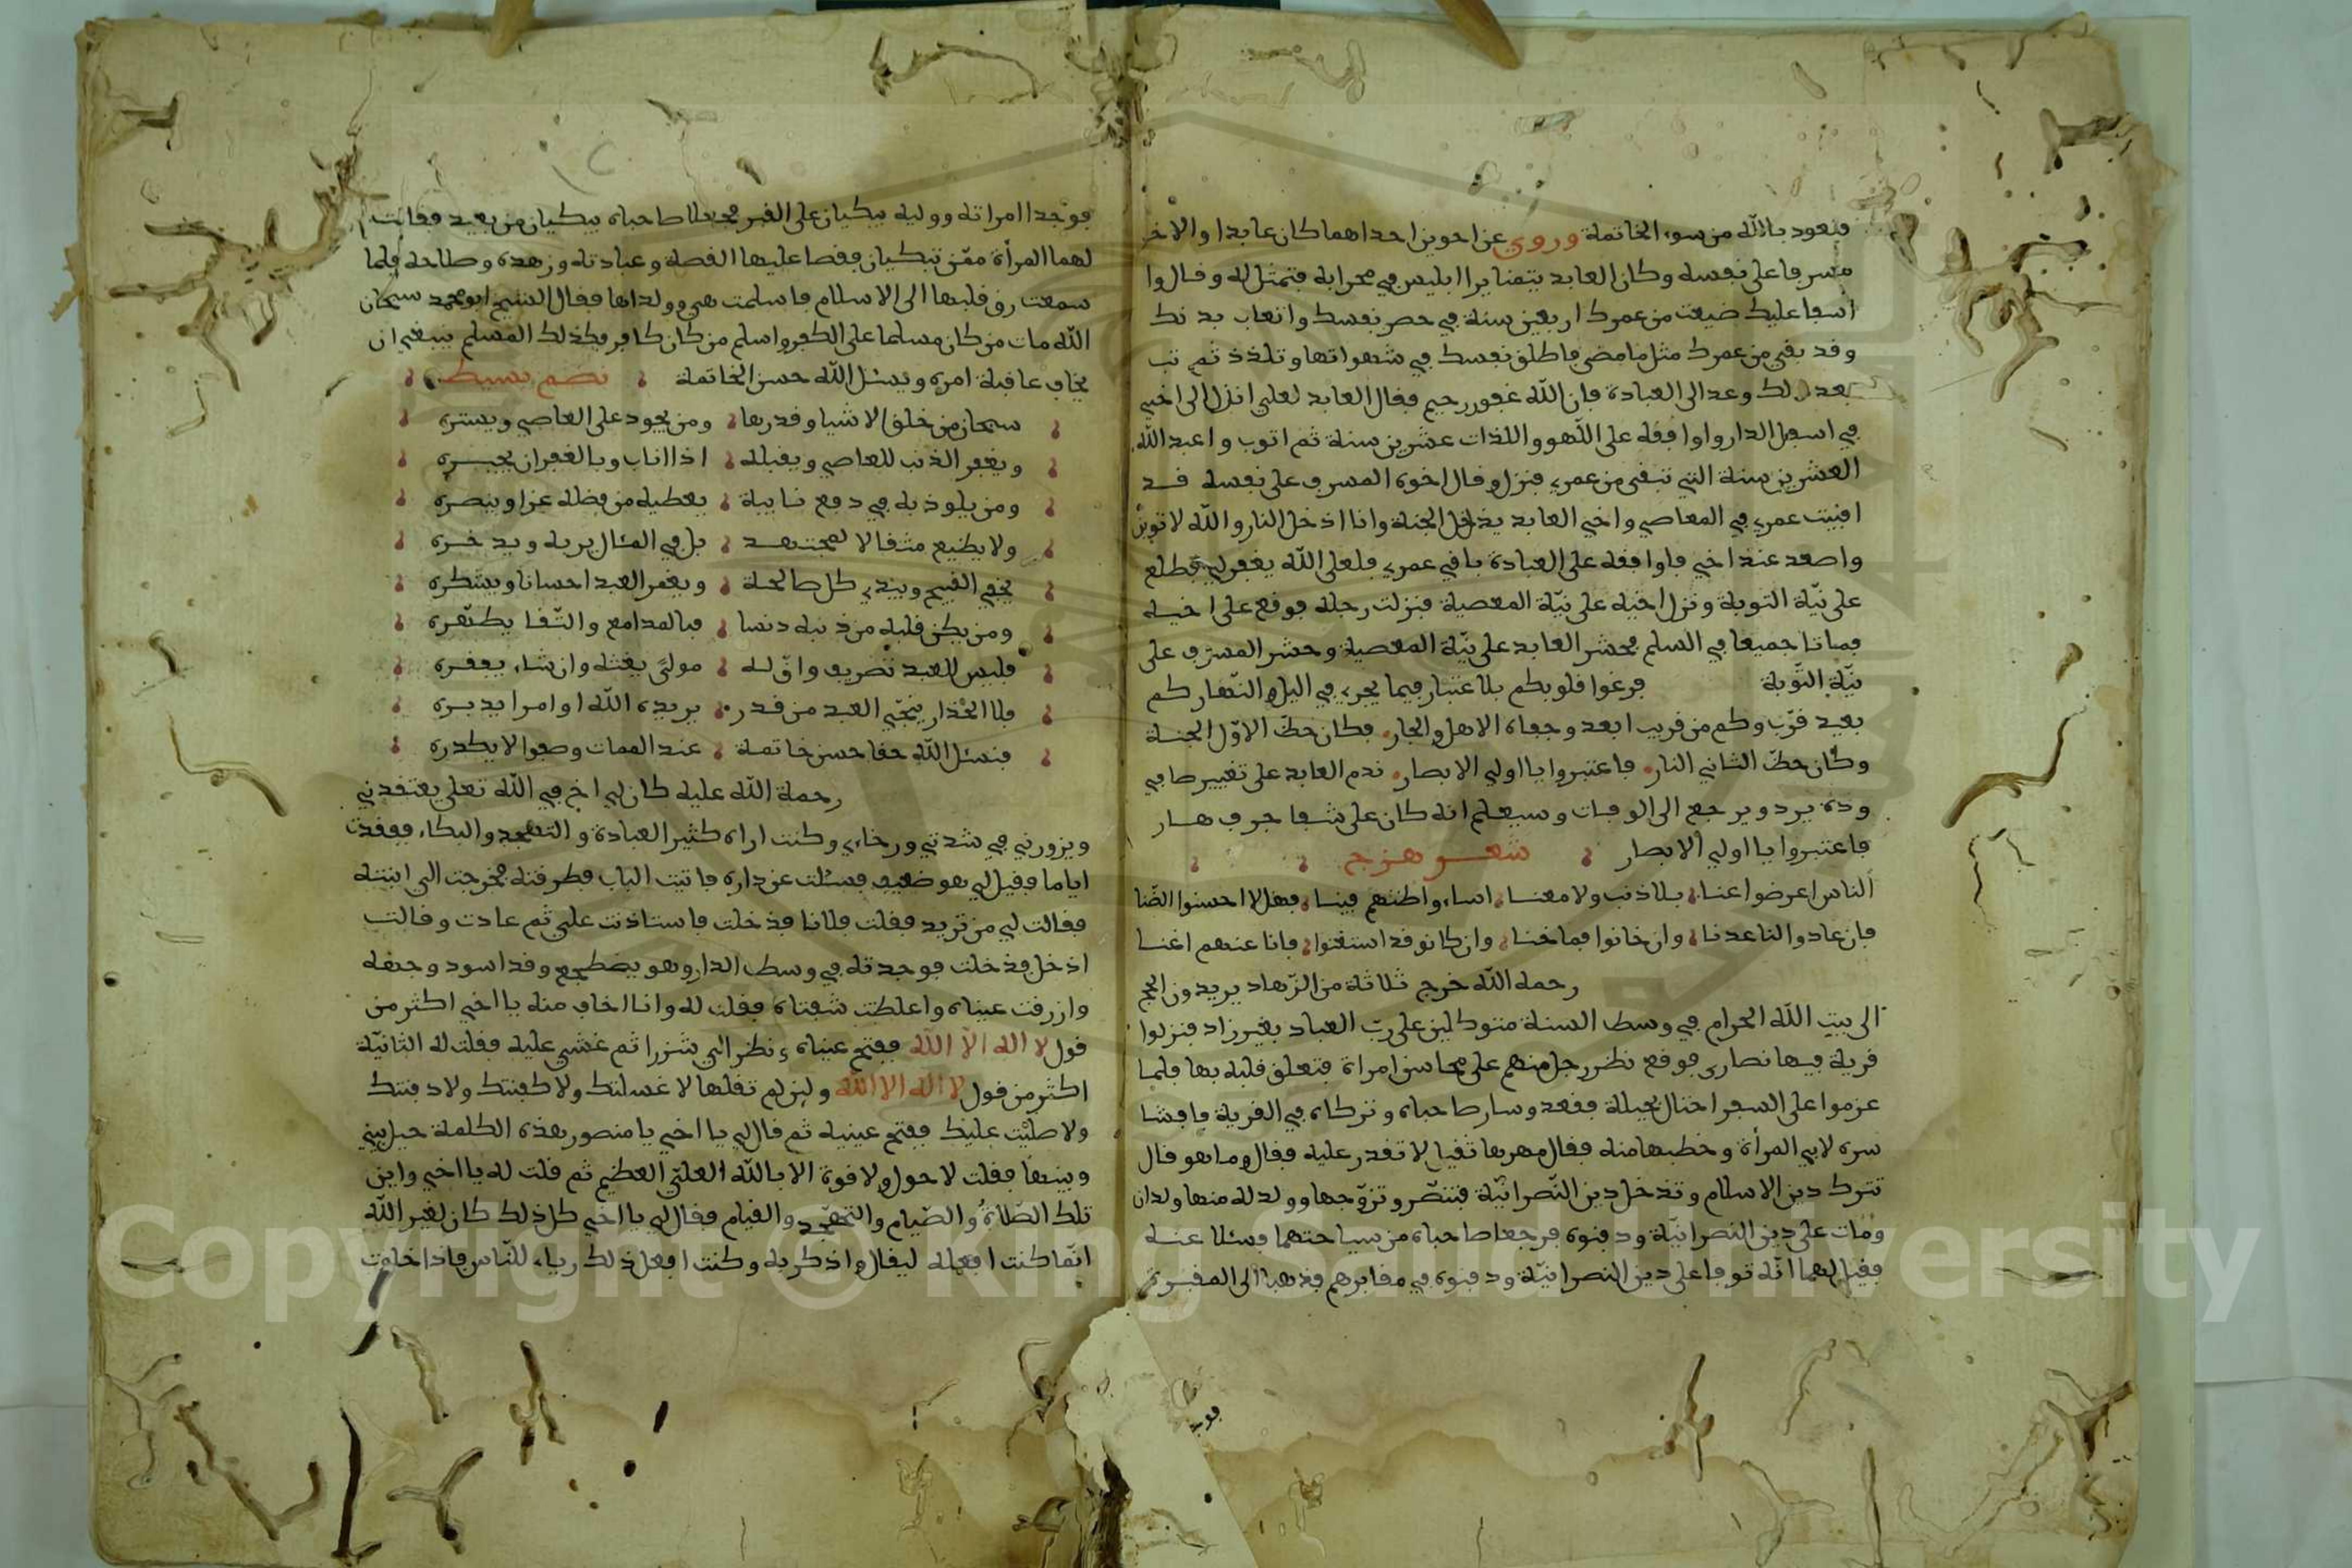 فنعوذ بالله من سوء الخاتمة وروي عن اخوين احداهما كان عابدا والاخر
مسرفا على نفسه وكان العابد يتمنا يرا ابليس في محرابه فتمثل له وقال وا
اسفا عليك ضيعت من عمرك اربعين سنة في حصر نفسك واتعاب بدنك
وقد بقي من عمرك مثل ما مضى فاطلق نفسك في شهواتها وتلذذ ثم تب
بعد ذلك وعد الى العبادة فان الله غفور رحيم فقال العابد لعلي انزل الى اخي
في اسفل الدار واوافقه على اللهو واللذات عشرين سنة ثم اتوب واعبد الله
العشرين سنة التي تبقى من عمري فنزل وقال اخوه المسرف على نفسه قد
افنيت عمري في المعاصي واخي العابد يدخل الجنة وانا ادخل النار والله لاتوبن
واصعد عند اخي فاوافقه على العبادة باقي عمري فلعل الله يغفر لي فطلع
على نية التوبة ونزل اخيه على نية المعصية فنزلت رجله فوقع على اخيه
فماتا جميعا في السلم فحشر العابد على نية المعصية وحشر المسرف على
نية التوبة فرغوا قلوبكم بلاعتبار فيما يجري في اليل والنهار كم
بعيد قرب وكم من قريب ابعد وجفاه الاهل والجار فكان حظ الاول الجنة
وكان حظ الثاني النار فاعتبروا يا اولي الابصار ندم العابد على تغيير صافي
وده يرد ويرجع الى الوفات وسيعلم انه كان على شفا جرف هار
فاعتبروا يا اولي الابصار شعر هزج
الناس اعرضوا عنا بلا ذنب ولا معنا اساء واظنهم فينا فهل لا احسنوا الظنا
فان عادوا لنا عدنا وان خانوا فما خنا وان كانو قد استغنوا فانا عنهم اغنا
رحمه الله خرج ثلاثة من الزهاد يريدون الحج
الى بيت الله الحرام في وسط السنة متوكلين على رب العباد بغير زاد فنزلوا
قرية فيها نصارى فوقع نظر رجل منهم على محاسن امراة فتعلق قلبه بها فلما
عزموا على السفر احتال بحيلة فقعد وسار صاحباه وتركاه في القرية فافشا
سره لابي المرأة وخطبها منه فقال مهرها ثقيل لا تقدر عليه فقال وما هو قال
تترك دين الاسلام وتدخل دين النصرانية فتنصر وتزوجها وولد له منها ولدان
ومات على دين النصرانية ودفنوه فرجعا صاحباه من سياحتهما فسئلا عنه
فقيل لهما انه توفا على دين النصرانية ودفنوه في مقابرهم فذهبا الى المقبرة
فوجدا امراته ووليه يبكيان على القبر فجعلا صاحباه يبكيان من بعيد فقالت
لهما المرأة ممن تبكيان فقصا عليها القصة وعبادته وزهده وصلاحه فلما
سمعت رق قلبها الى الاسلام فاسلمت هي وولداها فقال الشيخ ابو محمد سبحان
الله مات من كان مسلما على الكفر واسلم من كان كافر فكذلك المسلم ينبغي ان
يخاف عاقبة امره ويسئل الله حسن الخاتمة نضم بسيط
سبحان من خلق الاشيا وقدرها ومن يجود على العاصي ويستره
ويغفر الذنب للعاصي ويقبله اذا اناب وبالغفران يجبره
ومن يلوذ به في دفع نايبة يعطيه من فضله عزا وينصره
ولا يضيع مثقالا لمجتهد بل في المئال يربه ويدخره
يخفي القبيح ويبدي كل صالحة ويغمر العبد احسانا ويشكره
ومن يكن قلبه من ذنبه دنسا فبالمدامع والتقا يطهره
فليس للعبد تصريف وان له مولى يغثه وان شاء يعفره
فلا الحذار ينجي العبد من قدر يريده الله او امرا يدبره
فنسئل الله حقا حسن خاتمة عند الممات وصفوا لا يكدره
رحمة الله عليه كان لي اخ في الله تعلى يعتقدني
ويزورني في شدتي ورخاءي وكنت اراه كثير العبادة والتهجد والبكاء ففقدت
اياما فقيل لي هو ضعيف فسئلت عن داره فاتيت الباب فطرقته فخرجت الي ابنته
فقالت لي من تريد فقلت فلانا فدخلت فاستاذنت علي ثم عادت وقالت
ادخل فدخلت فوجدته في وسط الدار وهو يضطجع وقد اسود وجهه
وازرقت عيناه واغلظت شفتاه فقلت له وانا اخاف منه يا اخي اكثر من
قول لا اله الا الله ففتح عيناه ونظر الي شزرا ثم غشي عليه فقلت له الثانية
اكثر من قول لا اله الا الله ولين لم تقلها لا غسلتك ولا كفنتك ولا دفنتك
ولا صليت عليك ففتح عينيه ثم قال لي يا اخي يا منصور هذه الكلمة حيل بيني
وبينها فقلت لا حول ولا قوة الا بالله العلي العظيم ثم قلت له يا اخي واين
تلك الصلاة والصيام والتهجد والقيام فقال لي يا اخي كل ذلك كان لغير الله
انما كنت افعله ليقال واذكر به وكنت افعل ذلك رياء للناس فاذا خلوت
Copyright © King Saud University